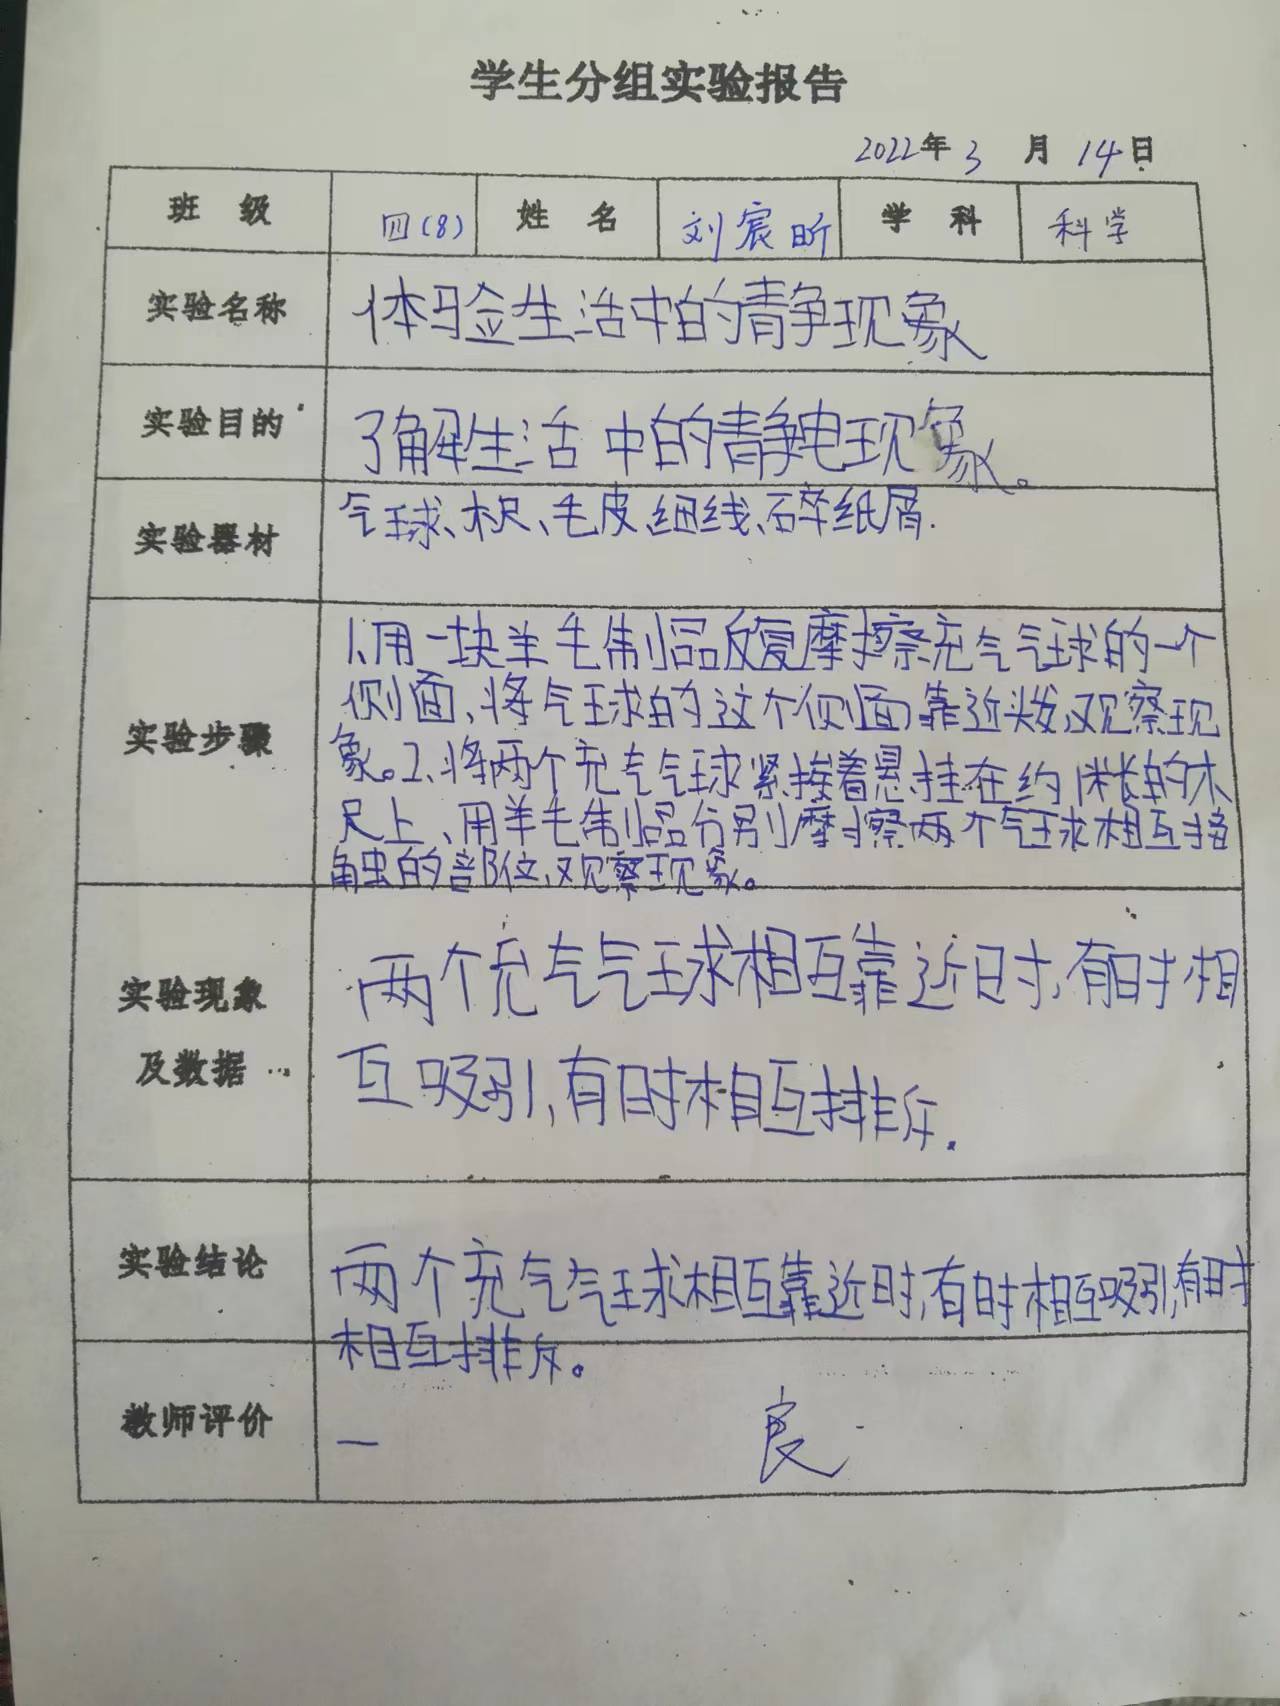 学生分组实验报告
2022年3月14日
班级 四(8) 姓名 刘宸昕 学科 科学
实验名称 体验生活中的青争现象
实验目的 了解生活中的青争电现象。
实验器材 气球、木尺、毛皮、细线、碎纸屑.
实验步骤
1、用一块羊毛制品反复摩擦充气气球的一个
侧面、将气球的这个侧面靠近头发、观察现
象。2、将两个充气气球紧挨着悬挂在约1米长的木
尺上、用羊毛制品分别摩擦两个气球相互接
触的部位、观察现象。
实验现象
及数据
两个充气气球相互靠近时,有时相
互吸引,有时相互排斥.
实验结论
两个充气气球相互靠近时,有时相互吸引,有时
相互排斥。
教师评价 一 良